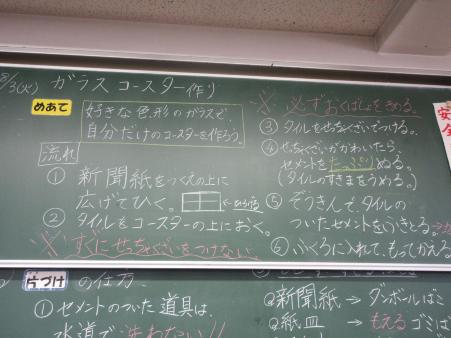 8/3(火) ガラスコースター作り
めあて
好きな色、形のガラスで、
自分だけのコースターを作ろう。
流れ
① 新聞紙をつくえの上に
広げてひく。
② タイルをコースターの上におく。
※すぐにせっちゃくざいをつけない。
※必ずおくばしょをきめる。
③ タイルをせっちゃくざいでつける。
④ せっちゃくざいがかわいたら、
セメントをたっぷりぬる。
(タイルのすきまをうめる。)
⑤ ぞうきんで、タイルの
ついたセメントをふきとる。
⑥ ふくろに入れて、もってかえる
安
全
片づけの仕方
① セメントのついた道具は、
水道で洗わない!!
新聞紙 → ダンボールばこ
紙皿 → もえるゴミば